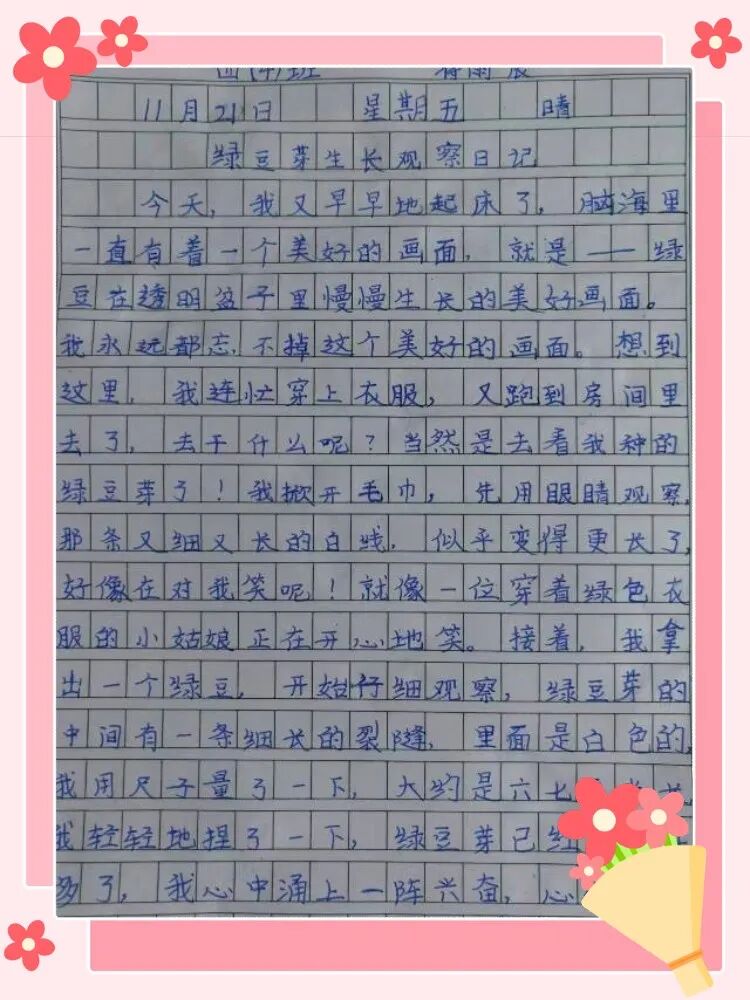 四(4)班 雨辰
11月21日 星期五 晴
绿豆芽生长观察日记
今天,我又早早地起床了,脑海里
一直有着一个美好的画面,就是——绿
豆在透明盆子里慢慢生长的美好画面。
我永远都忘不掉这个美好的画面。想到
这里,我连忙穿上衣服,又跑到房间里
去了,去干什么呢?当然是去看我种的
绿豆芽了!我掀开毛巾,先用眼睛观察,
那条又细又长的白线,似乎变得更长了,
好像在对我笑呢!就像一位穿着绿色衣
服的小姑娘正在开心地笑。接着,我拿
出一个绿豆,开始仔细观察,绿豆芽的
中间有一条细长的裂缝,里面是白色的,
我用尺子量了一下,大约是六七
我轻轻地捏了一下,绿豆芽已经
多了,我心中涌上一阵兴奋,心